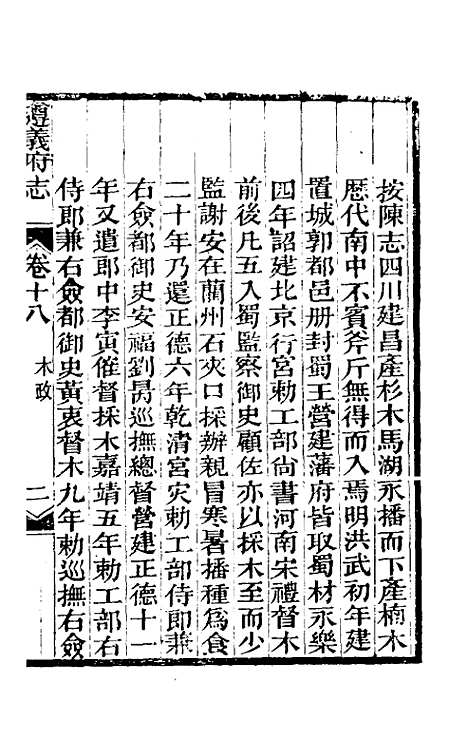 按陳志四川建昌產杉木馬湖永播而下產楠木
歷代南中不賓斧斤無得而入焉明洪武初年建
置城郭都邑册封蜀王營建藩府皆取蜀材永樂
四年詔建北京行宮勅工部尙書河南宋禮督木
前後凡五入蜀監察御史顧佐亦以採木至而少
監謝安在藺州石夾口採辦親冒寒暑播種爲食
二十年乃還正德六年乾清宮灾勅工部侍郞兼
右僉都御史安福劉昺巡撫總督營建正德十一
年又遣郞中李寅催督採木嘉靖五年勅工部右
侍郞兼右僉都御史黃衷督木九年勅巡撫右僉
遵義府志
卷十八
木政
二